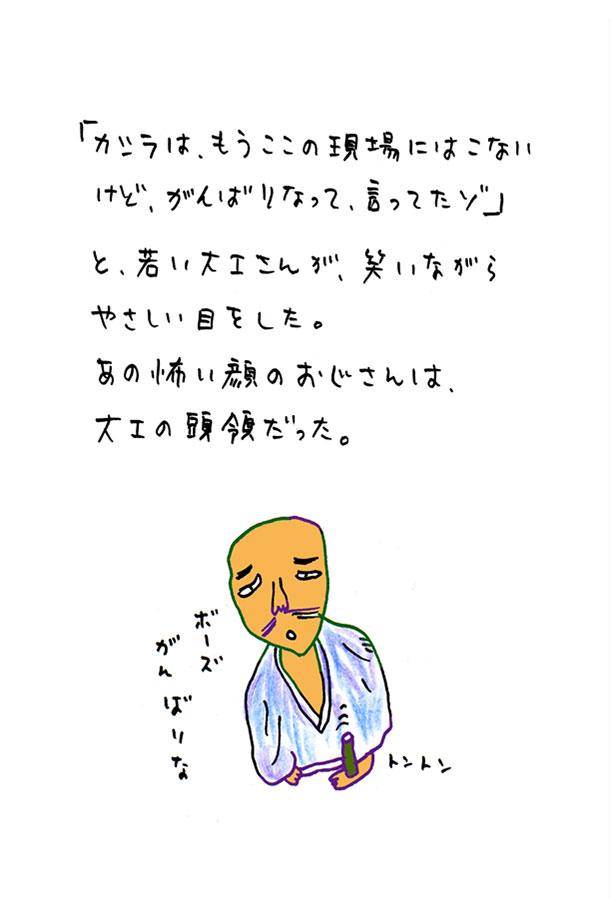 「ガシラは、もうここの現場にはこない
けど、がんばりなって、言ってたゾ」
と、若い大工さんが、笑いながら
やさしい目をした。
あの怖い顔のおじさんは、
大工の頭領だった。
ボーズ
がんばりな
トントン